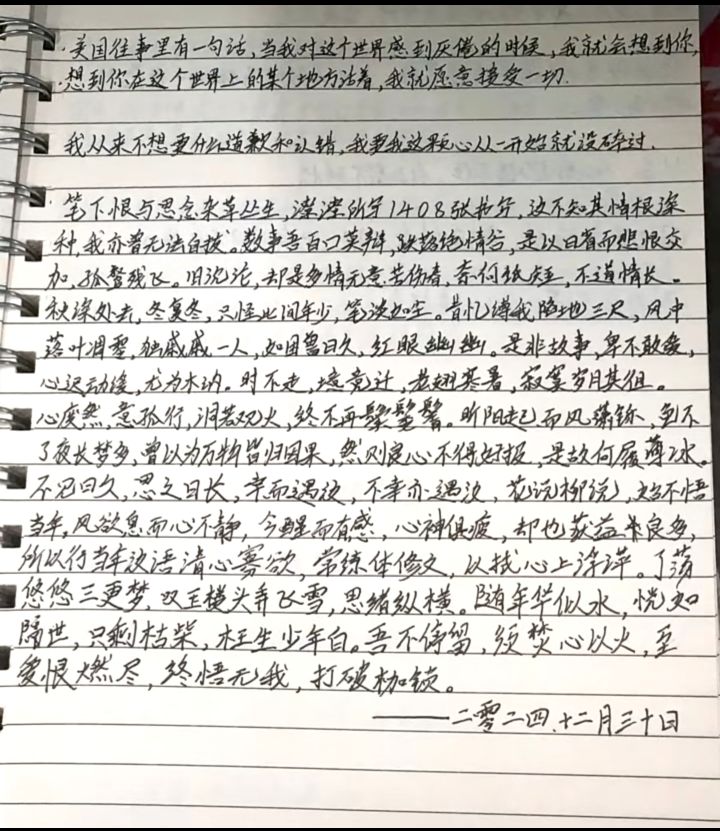 ·美国往事里有一句话，当我对这个世界感到厌倦的时候，我就会想到你，
想到你在这个世界上的某个地方活着，我就愿意接受一切.
我从来不想要什么道歉和认错，我要我这颗心从一开始就没碎过.
·笔下恨与思念杂草丛生，涩涩所写1408张书签，这不知其情根深
种，我亦曾无法自拔。数事吾百口莫辩，跌落绝情谷，是以日省而悲恨交
加，孤鹜残飞。旧沉沦，却是多情无意苦伤春，奈何纸短，不道情长。
秋深处去，冬复冬，只怪此间年少，笔淡如尘。昔忆缚我陷地三尺，风中
落叶凋零，独戚戚一人，如困兽日久，红眼幽幽。是非故事，卑不敢爱，
心迟动缓，尤为木讷。时不走，境竟迁，老翅寒暑，寂寞岁月其徂。
心废然，意孤行，洞若观火，终不再鬓鬟鬢。昕阳起而风潇铄，免不
了夜长梦多，曾以为万物皆归因果，然则良心不得好报，是故何履薄冰。
不见日久，思之日长，幸而遇汝，不幸亦遇汝，花说柳说，始不悟
当年，风欲息而心不静，今醒而有感，心神俱疲，却也获益良多，
所以行当年汝语清心寡欲，常练体修文，以拭心上浮萍。了荡
悠悠三更梦，双王楼头弄飞雪，思绪纵横。随年华似水，恍如
隔世，只剩枯柴，枉生少年白。吾不停留，须焚心以火，至
爱恨燃尽，终悟无我，打破枷锁。
——二零二四.十二月三十日